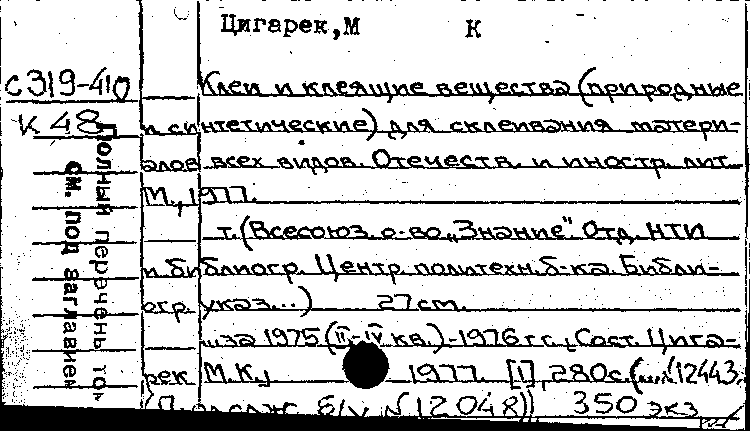 Цигарек,М К
с319-410 Клеи и клеящие вещества (природные
К 48 и синтетические) для склеивания матери-
алов всех видов. Отечеств. и иностр. лит.
М., 1977.
т. (Всесоюз. о-во „Знание". Отд. НТИ
и библиогр. Центр. политехн. б-ка. Библи-
огр. указ...) 27 см.
...за 1975 (II-IV кв.)-1976 гг., Сост. Цига-
рек М.К., 1977. [1], 280с. 12443.
б/у №12048)) 350 экз
Полный перечень то-
см. под заглавием